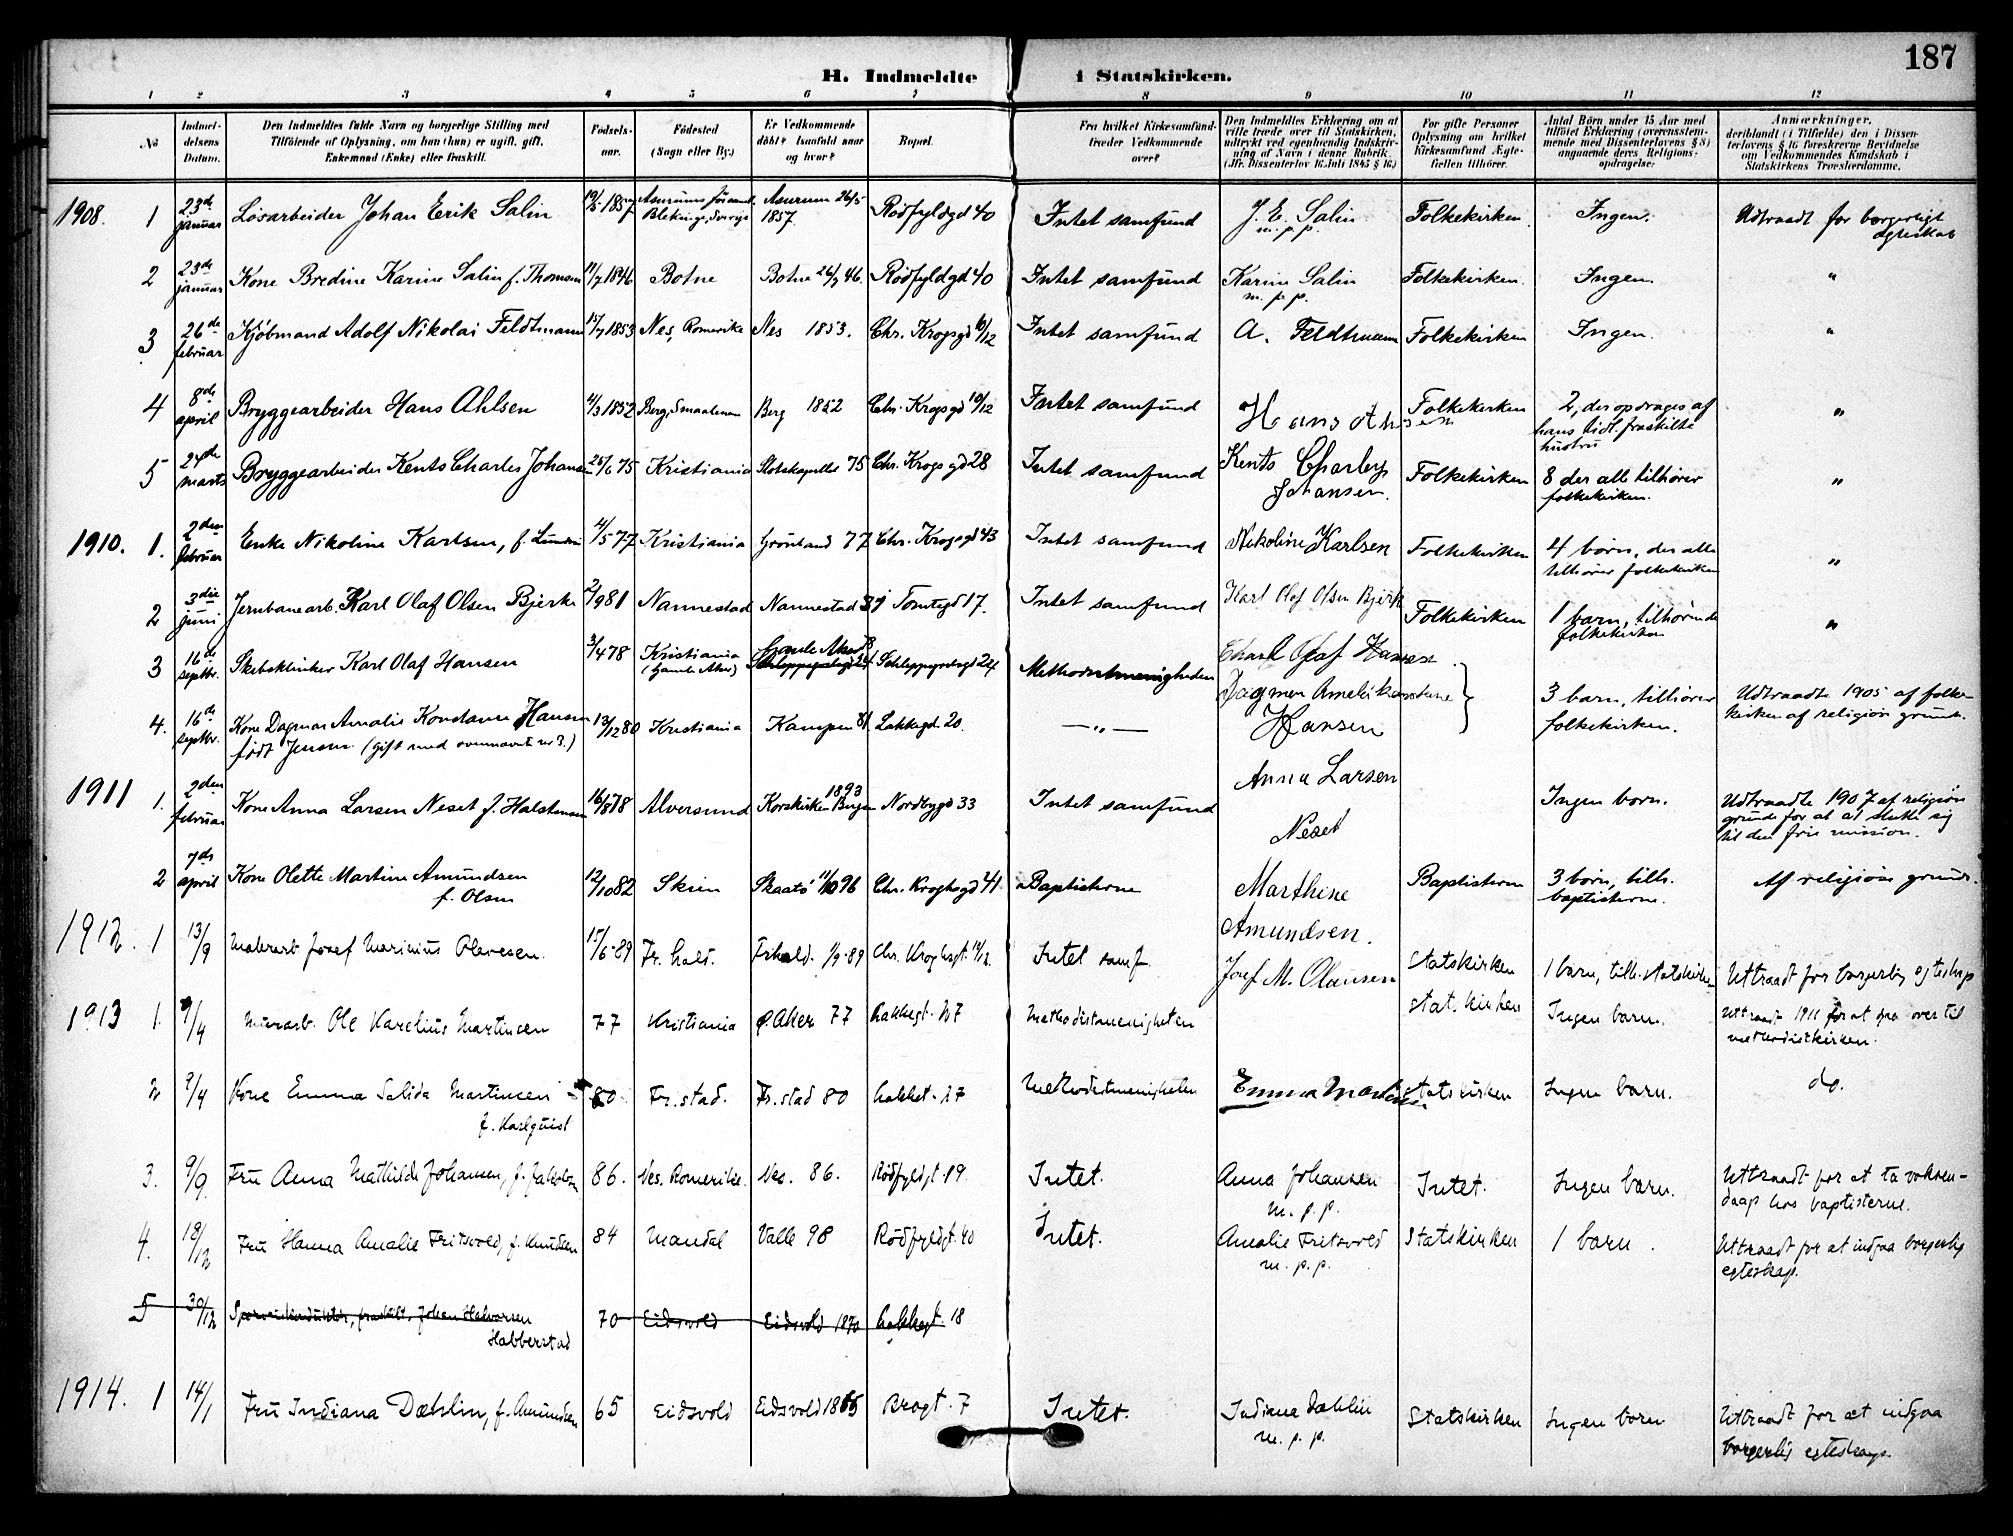 187
H. Indmeldte i Statskirken.
1 2 3 4 5 6 7 8 9 10 11 12
No
Indmeldelsens Datum.
Den Indmeldtes fulde Navn og borgerlige Stilling med Tilföiende af Oplysning, om han (hun) er ugift, gift, Enkemand (Enke) eller fraskilt.
Fødselsaar.
Födested (Sogn eller By.)
Er Vedkommende döbt? Isaafald naar og hvor?
Bopæl.
Fra hvilket Kirkesamfund træder Vedkommende over?
Den Indmeldtes Erklæring om at ville træde over til Statskirken, udtrykt ved egenhændig Indskrivning af Navn i denne Rubrik. (Jfr. Dissenterlov 16. Juli 1845 § 16.)
For gifte Personer Oplysning om hvilket Kirkesamfund Ægtefællen tilhörer.
Antal Börn under 15 Aar med tilföiet Erklæring (overensstemmende med Dissenterlovens § 8) angaaende deres Religionsopdragelse.
Anmærkninger, deriblandt (i Tilfælde) den i Dissenterlovens § 16 foreskrevne Bevidnelse om Vedkommendes Kundskab i Statskirkens Troeslærdomme.
1908. 1 23de januar Løsarbeider Johan Erik Salin 1857 Asarum 26/5 1857. Rødfyldgd 40 Intet samfund J. E. Salin m.p.p. Folkekirken. Ingen. Udtraadt for borgerligt ægteskab
2 23de januar Kone Bredine Karine Salin f. Thomsen 11/7 1846 Botne Botne 26/7 46. Rødfyldgd 40 Intet samfund Karine Salin m.p.p. Folkekirken. Ingen "
3 26de februar Kjøbmand Adolf Nikolai Feldtmann 17/7 1853 Nes, Romerike Nes 1853. Chr. Krogsgd 10/12 Intet samfund A. Feldtmann Folkekirken Ingen. "
4 8de april Bryggearbeider Hans Ahlsen 4/3 1852 Berg, Smaalenene Berg 1852 Chr. Krogsgd 10/12 Intet samfund Hans Ahlsen Folkekirken 2, der opdrages af hans tidl. fraskilte hustru "
5 24de marts Bryggearbeider Kents Charles Johansen 25/6 75 Kristiania Slotskapellet 75 Chr. Krogsgd 28 Intet samfund Kents Charles Johansen. Folkekirken 8 der alle tilhører folkekirken. "
1910. 1. 2den februar Enke Nikoline Karlsen, f. 4/5 77 Kristiania Grønland 77 Chr. Krogsgd 43 Intet samfund Nikoline Karlsen Folkekirken 4 børn, der alle tilhører folkekirken "
2 3die juni Jernbanearb. Karl Olaf Olsen Bjerke 2/9 81 Nannestad Nannestad Tomtegd 17. Intet samfund Karl Olaf Olsen Bjerke Folkekirken 1 barn, tilhørende folkekirken "
3 16de septbr. Karl Olaf Hansen 3/4 78 Kristiania (Gamle Aker) Gamle Aker Schleppegrelsgd 24 Methodistmenigheden Olaf Hansen
4. 16de septbr. Kone Dagmar Amalie Konstanse Hansen født Jensen. (gift med ovennævnte no 3.) 13/12 80 Kristiania Kampen 81. Lakkegd 20. — " — Dagmar Amelie Konstanse Hansen 3 barn, tilhører folkekirken. Udtraadte 1905 af folkekirken af religiøse grunde.
1911 1. 2den februar Kone Anna Larsen Neset f. Halstensen 16/8 78 Alversund Korskirken Bergen 1893 Nordbygd 33 Intet samfund Anna Larsen Neset Ingen børn. Udtraadte 1907 af religiøse grunde for at at slutte sig til den frie mission.
2 7de april Kone Olette Martine Amundsen f. Olsen 12/10 82 Skien Skaatø 11/10 96 Chr. Kroghsgd 41 Baptisterne Marthine Amundsen. Baptisterne 3 børn, tilh. baptisterne. Af religiøse grunde.
1912. 1 13/9 Malerarb Josef Marinius Olavesen. 15/6-89 Fr. hald. Frhald. 1/9-89 Chr. Kroghsgt 10/12. Intet samf Josef M. Olausen Statskirken 1 barn, tilh. statskirken Uttraadt for borgerlig egteskap
1913 1. 9/4 Murarb. Ole Karelius Martinsen 77 Kristiania Ø. Aker 77 Lakkegt. 27 Methodistmenigheten Stat. kirken Ingen barn. Uttraadt 1911 for at gaa over til methodistkirken.
2 9/4 Kone Emma Salida Martinsen f. Karlquist 80 Fr.stad. Fr.stad 80 Lakket. 27 Methodistmenigheten Emma Martinsen Statskirken Ingen barn. do.
3. 9/9 Fru Anna Mathilde Johansen, f. Jakobsen 86. Nes. Romerike. Nes. 86. Rødfyldgt 19. Intet. Anna Johansen m.p.p. Intet. Ingen barn. Uttraadt for at ta voksendaap hos baptisterne.
4. 18/12 Fru Hanna Amalie Fritsvold, f. Knudsen 84 Mandal Valle 98 Rødfyldgt. 40 Intet. Amalie Fritsvold m.p.p. Statskirken 1 barn. Uttraadt for at indgaa borgerlig egteskap.
5 30/12 Sporveiskonduktør, fraskilt, Johan Halvorsen Habberstad 70 Eidsvold Eidsvold 1870 Lakkegt. 18
1914. 1 14/1 Fru Indiana Dæhlin, f. Amundsen 65 Eidsvold Eidsvold 1865 Brogt. 7 Intet. Indiana Dæhlin m.p.p. Statskirken Ingen barn Uttraadt for at indgaa borgerlig egteskap.